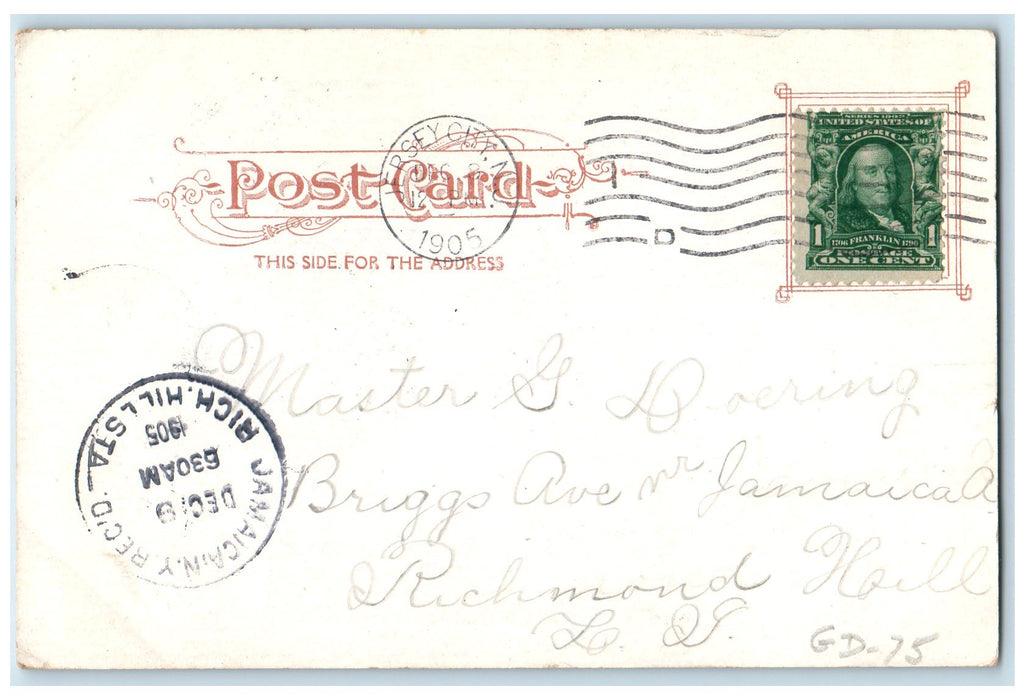 Post Card
THIS SIDE FOR THE ADDRESS
JERSEY CITY, N.J.
DEC 8
12 
1905
D
SERIES 1902
UNITED STATES OF
AMERICA
1706 FRANKLIN 1790
1 1
POSTAGE
ONE CENT
Master G. Doering
Briggs Ave nr Jamaica A
Richmond Hill
L. I.
GD-75
JAMAICA, N.Y. REC'D.
DEC 9
630AM
1905
RICH. HILL STA.